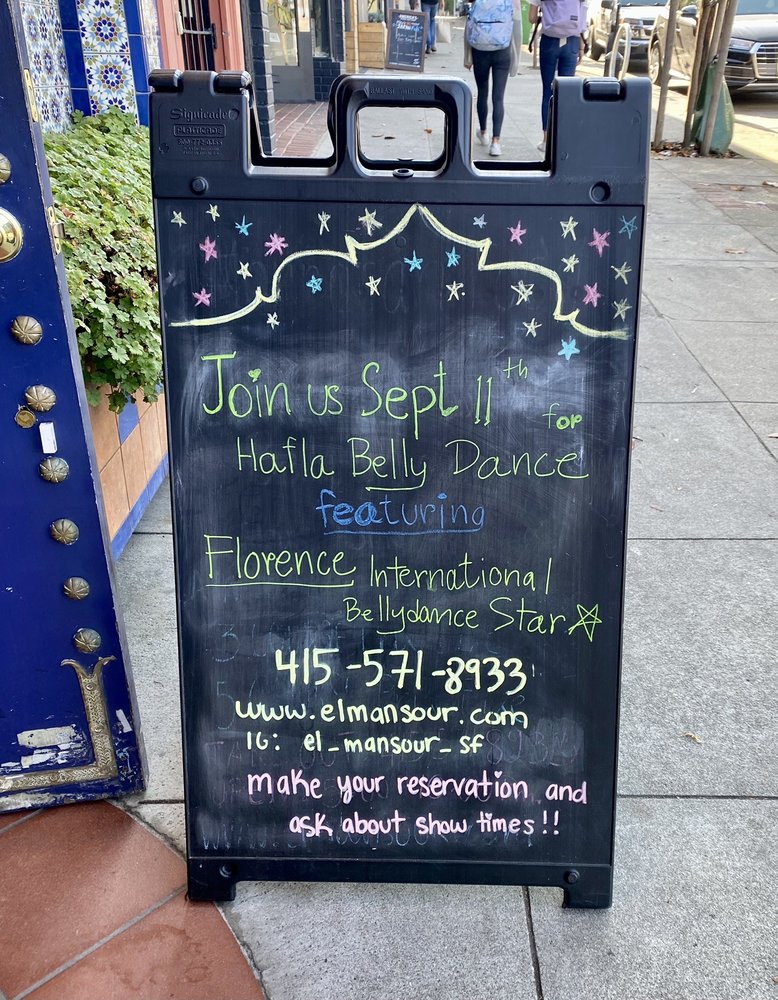 Signicade
PLASTICADE
Join us Sept 11th for
Hafla Belly Dance
featuring
Florence International
Bellydance Star
415-571-8933
www.elmansour.com
IG: el_mansour_sf
make your reservation and
ask about show times!!